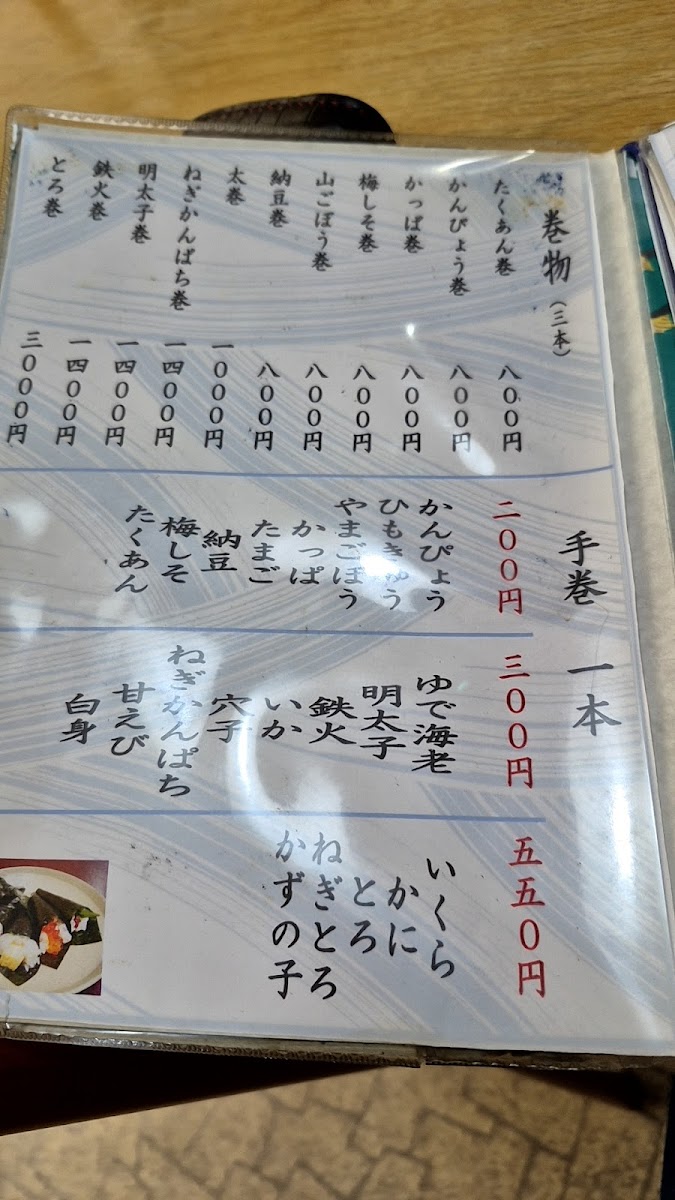 巻物（三本）
たくあん巻 八００円
かんぴょう巻 八００円
かっぱ巻 八００円
梅しそ巻 八００円
山ごぼう巻 八００円
納豆巻 八００円
太巻 一０００円
ねぎかんぱち巻 一四００円
明太子巻 一四００円
鉄火巻 一四００円
とろ巻 三０００円
手巻 一本
二００円
かんぴょう
ひもきゅう
やまごぼう
かっぱ
たまご
納豆
梅しそ
たくあん
三００円
ゆで海老
明太子
鉄火
いか
穴子
ねぎかんぱち
甘えび
白身
五五０円
いくら
かに
とろ
ねぎとろ
かずの子